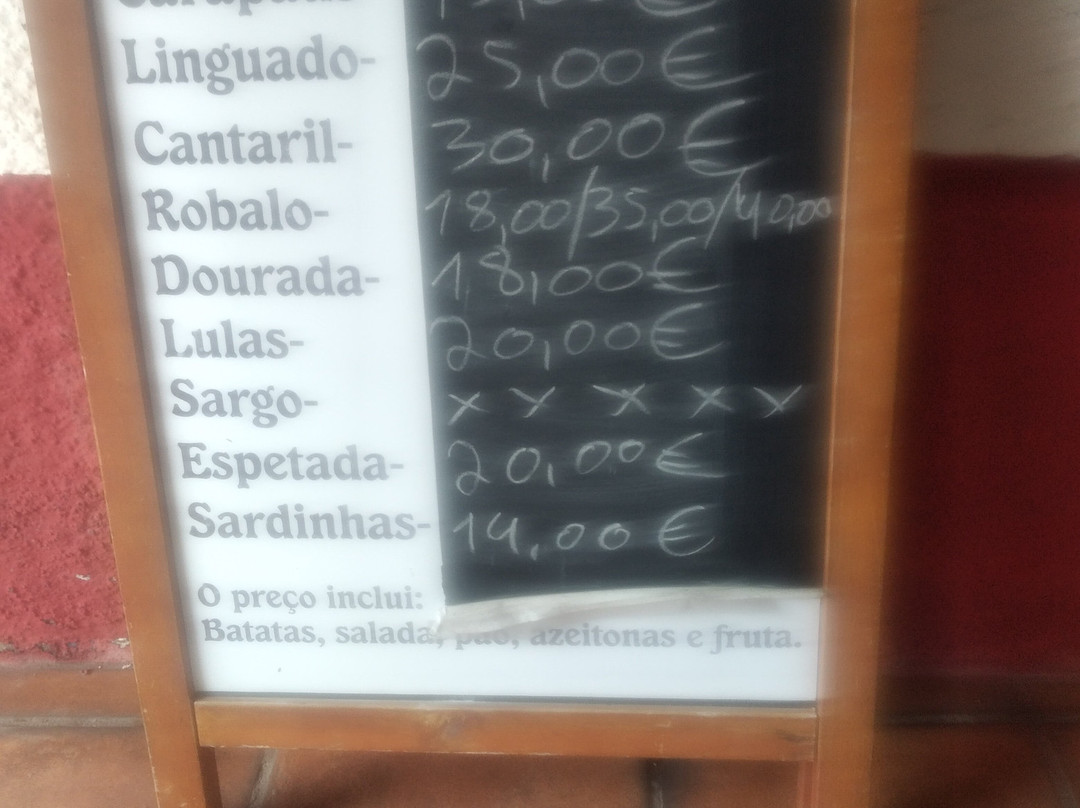 Linguado- 25,00 €
Cantaril- 30,00 €
Robalo- 18,00/35,00/40,00
Dourada- 18,00 €
Lulas- 20,00 €
Sargo- x x x x x
Espetada- 20,00 €
Sardinhas- 14,00 €
O preço inclui:
Batatas, salada, pão, azeitonas e fruta.